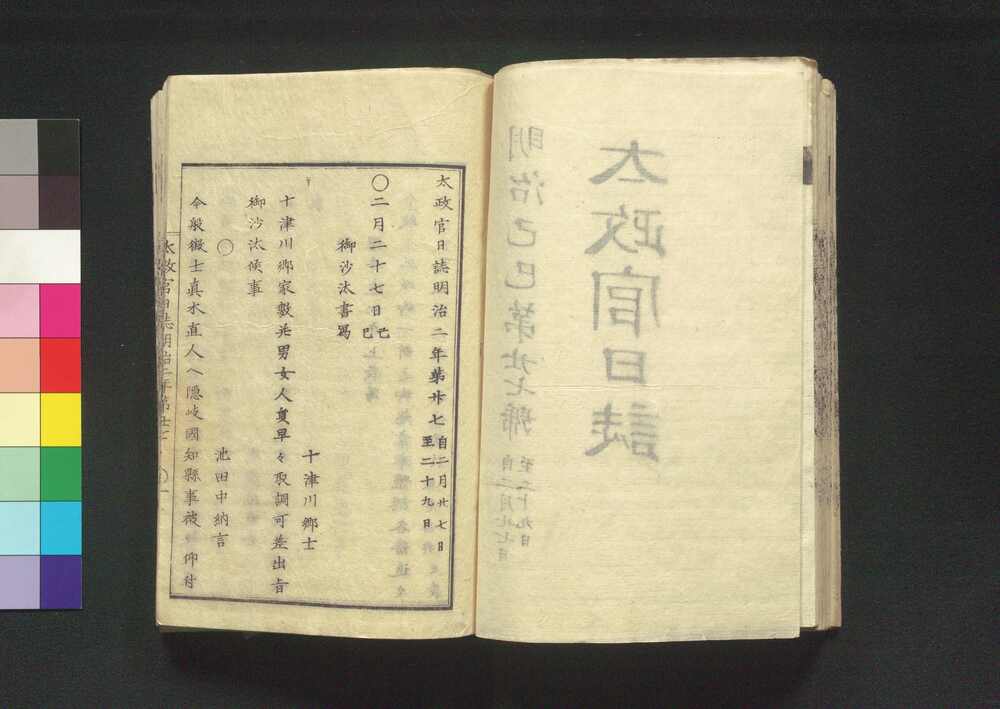 太政官日誌
明治己巳第廿七號
自二月廿七日
至二十九日
太政官日誌明治二年第廿七
自二月廿七日
至二十九日
〇二月二十七日己巳
御沙汰書寫
十津川郷士
十津川郷家數并男女人員早々取調可差出旨
御沙汰候事
〇
池田中納言
今般徴士真木直人ヘ隠岐國知縣事被 仰付
太政官日誌明治二年第廿七
〇一